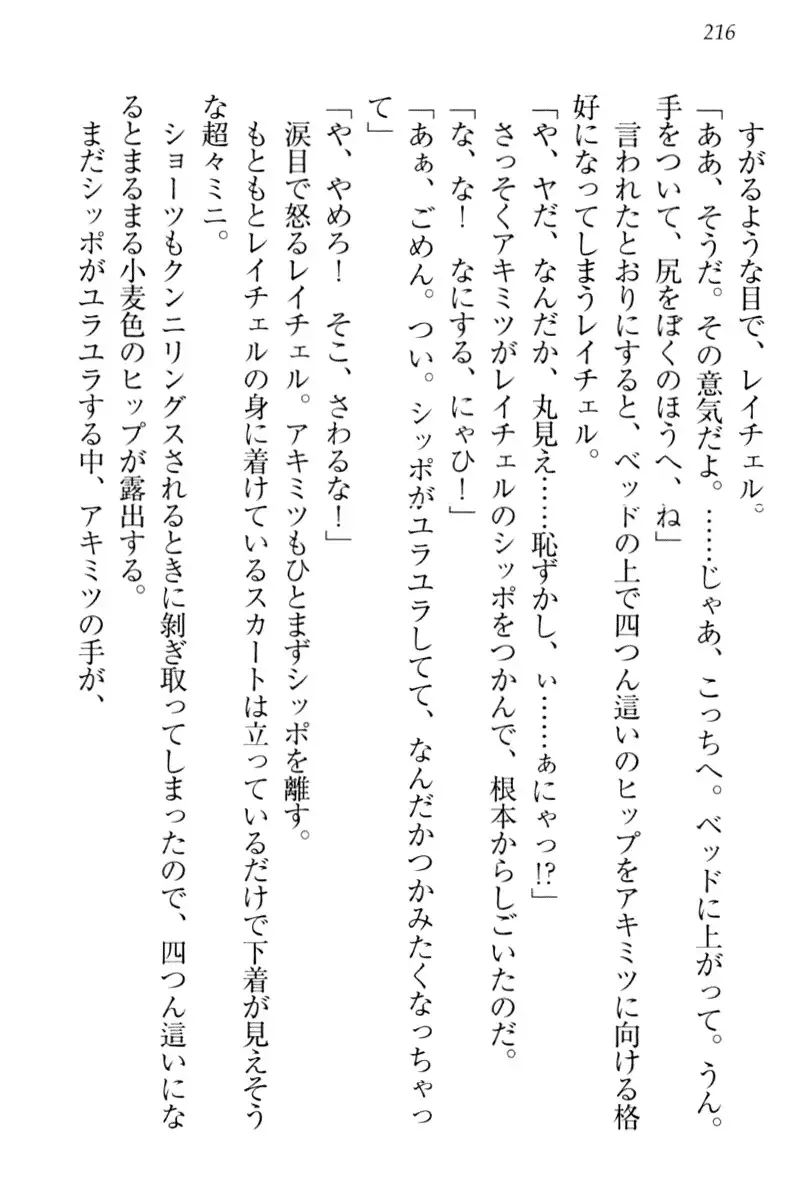 216
すがるような目で、レイチェル。
「ああ、そうだ。その意気だよ。……じゃあ、こっちへ。ベッドに上がって。うん。
手をついて、尻をぼくのほうへ、ね」
言われたとおりにすると、ベッドの上で四つん這いのヒップをアキミツに向ける格
好になってしまうレイチェル。
「や、ヤだ、なんだか、丸見え……恥ずかし、ぃ……ぁにゃっ!?」
さっそくアキミツがレイチェルのシッポをつかんで、根本からしごいたのだ。
「な、な！　なにする、にゃひ！」
「あぁ、ごめん。つい。シッポがユラユラしてて、なんだかつかみたくなっちゃっ
て」
「や、やめろ！　そこ、さわるな！」
涙目で怒るレイチェル。アキミツもひとまずシッポを離す。
もともとレイチェルの身に着けているスカートは立っているだけで下着が見えそう
な超々ミニ。
ショーツもクンニリングスされるときに剝ぎ取ってしまったので、四つん這いにな
るとまるまる小麦色のヒップが露出する。
まだシッポがユラユラする中、アキミツの手が、